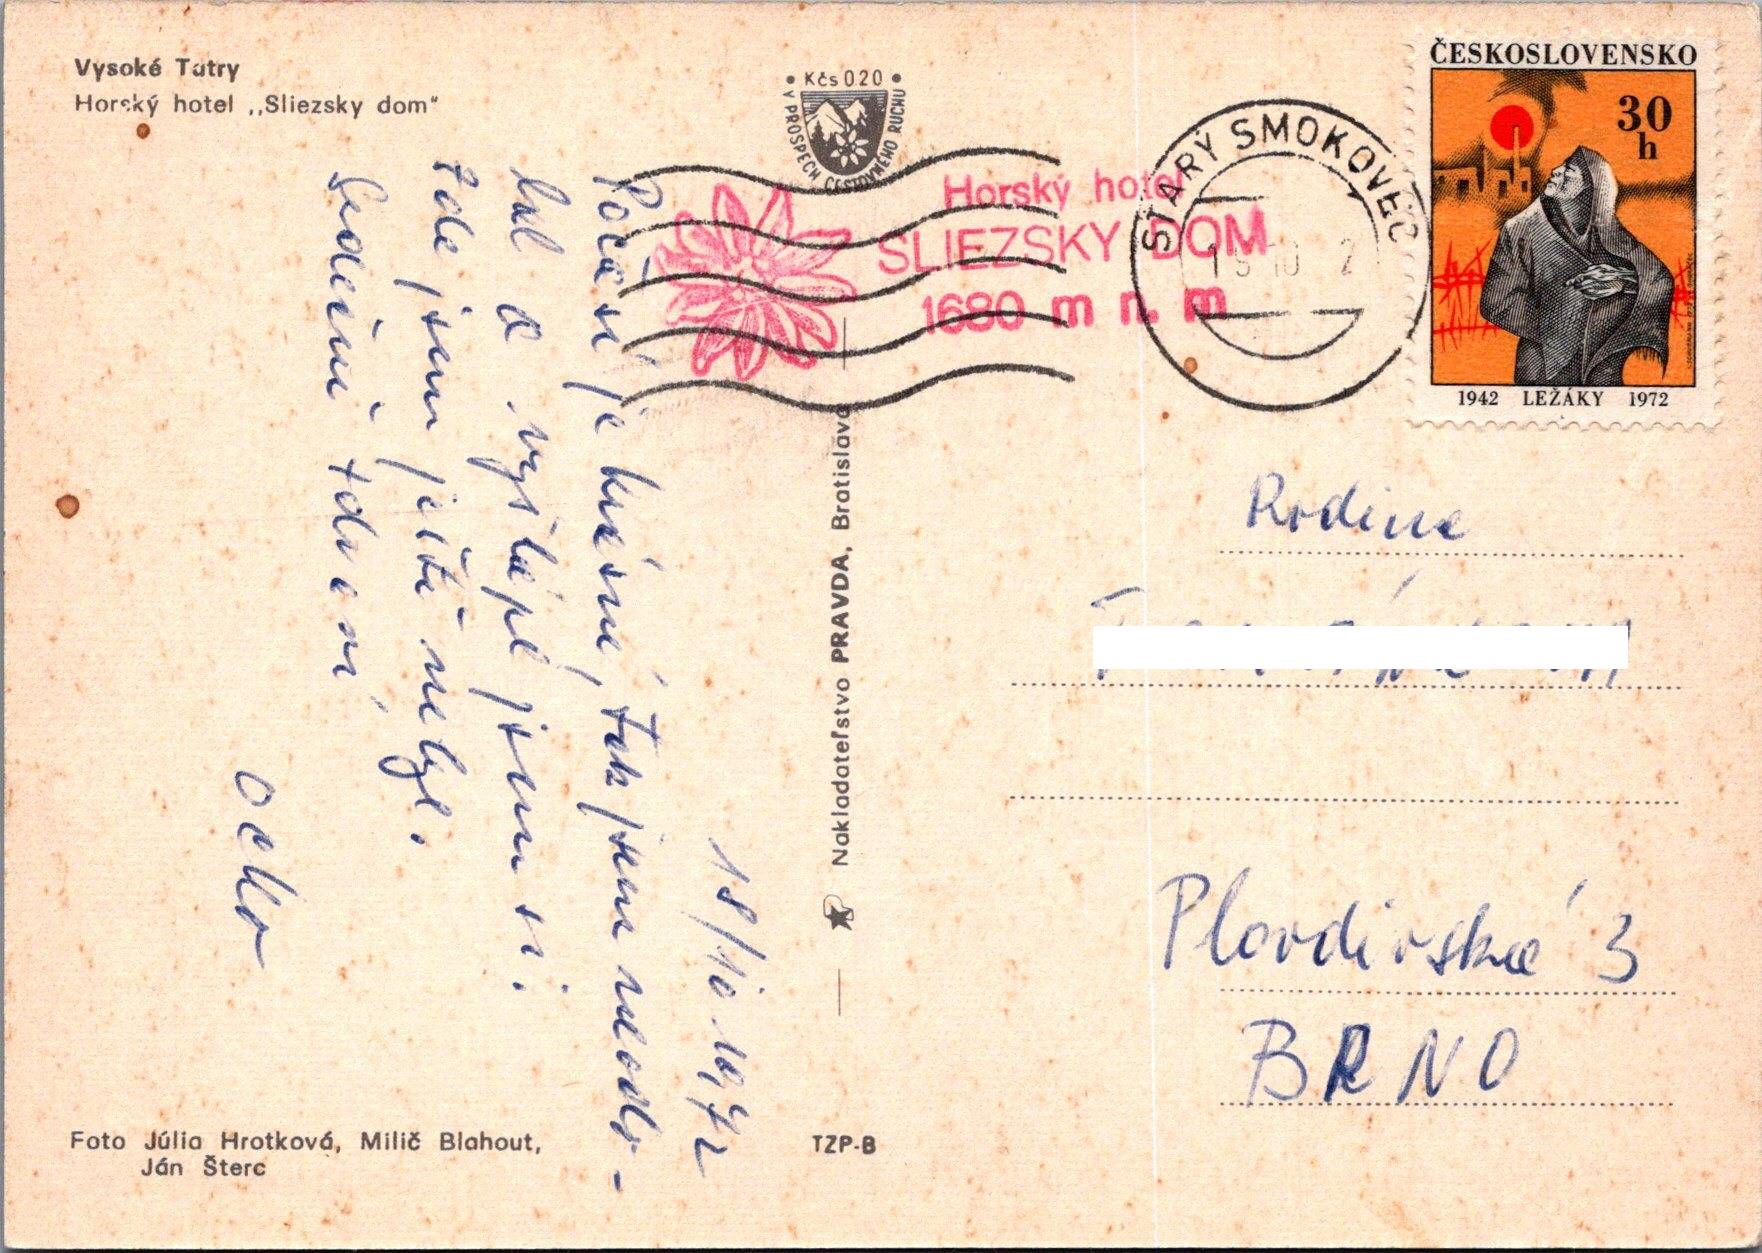 Vysoké Tatry
Horský hotel ,,Sliezsky dom"
• Kčs 020 •
V PROSPECH CESTOVNÉHO RUCHU
Horský hotel
SLIEZSKY DOM
1680 m n. m
STARÝ SMOKOVEC
19 10 2
ČESKOSLOVENSKO
30
h
1942 LEŽÁKY 1972
18/10 1972
Počasí je krásné, tak jsem neodo-
lal a vyšlápl jsem si.
Zde jsem ještě nebyl.
Srdečně zdraví
Nakladateľstvo PRAVDA, Bratislava
Rodina
Plovdivská 3
BRNO
Foto Júlia Hrotková, Milič Blahout,
Ján Šterc
TZP-B